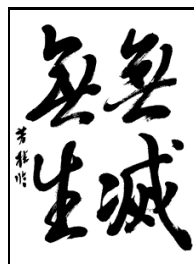 無滅
無生